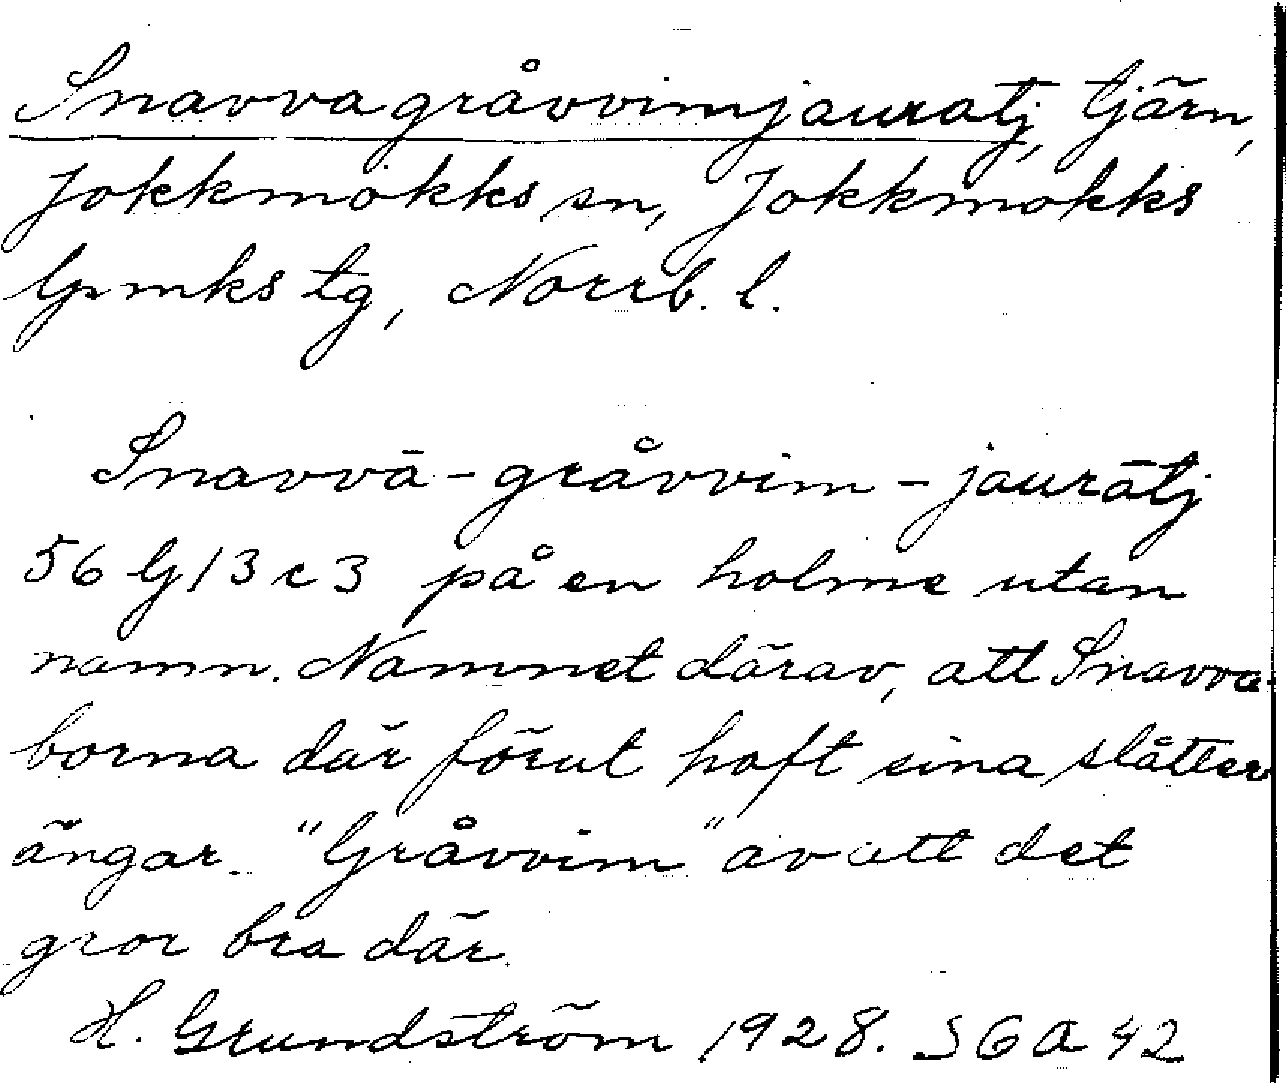 Snavvagråvvimjauratj, tjärn,
Jokkmokks sn, Jokkmokks
lpmks tg, Norrb. l.
Snavvā - gråvvim - jaurātj
56 G/3 c 3 på en holme utan
namn. Namnet därav, att Snavva-
borna där förut haft sina slåtter
ängar. "Gråvvim" av att det
gror bra där.
H. Grundström 1928. SGA 42